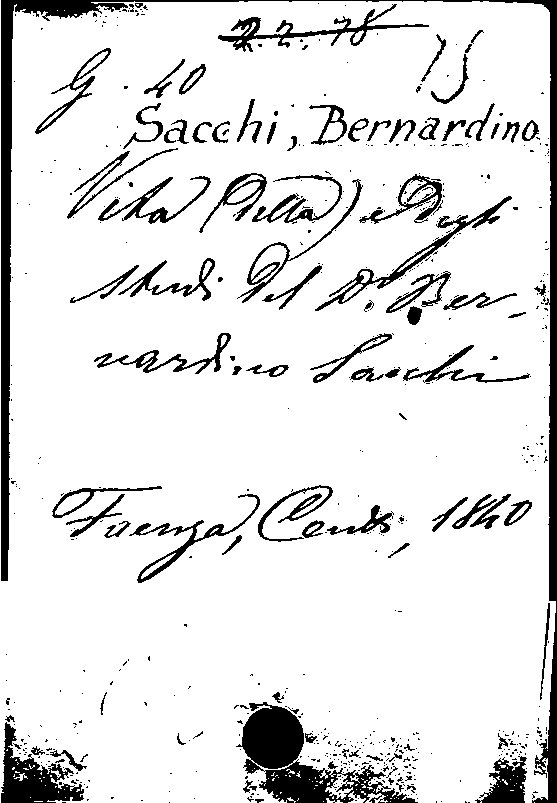 2.2.78
15
G. 40
Sacchi, Bernardino
Vita (della) e degli
studi del D.r Ber-
nardino Sacchi
Faenza, Conti, 1840